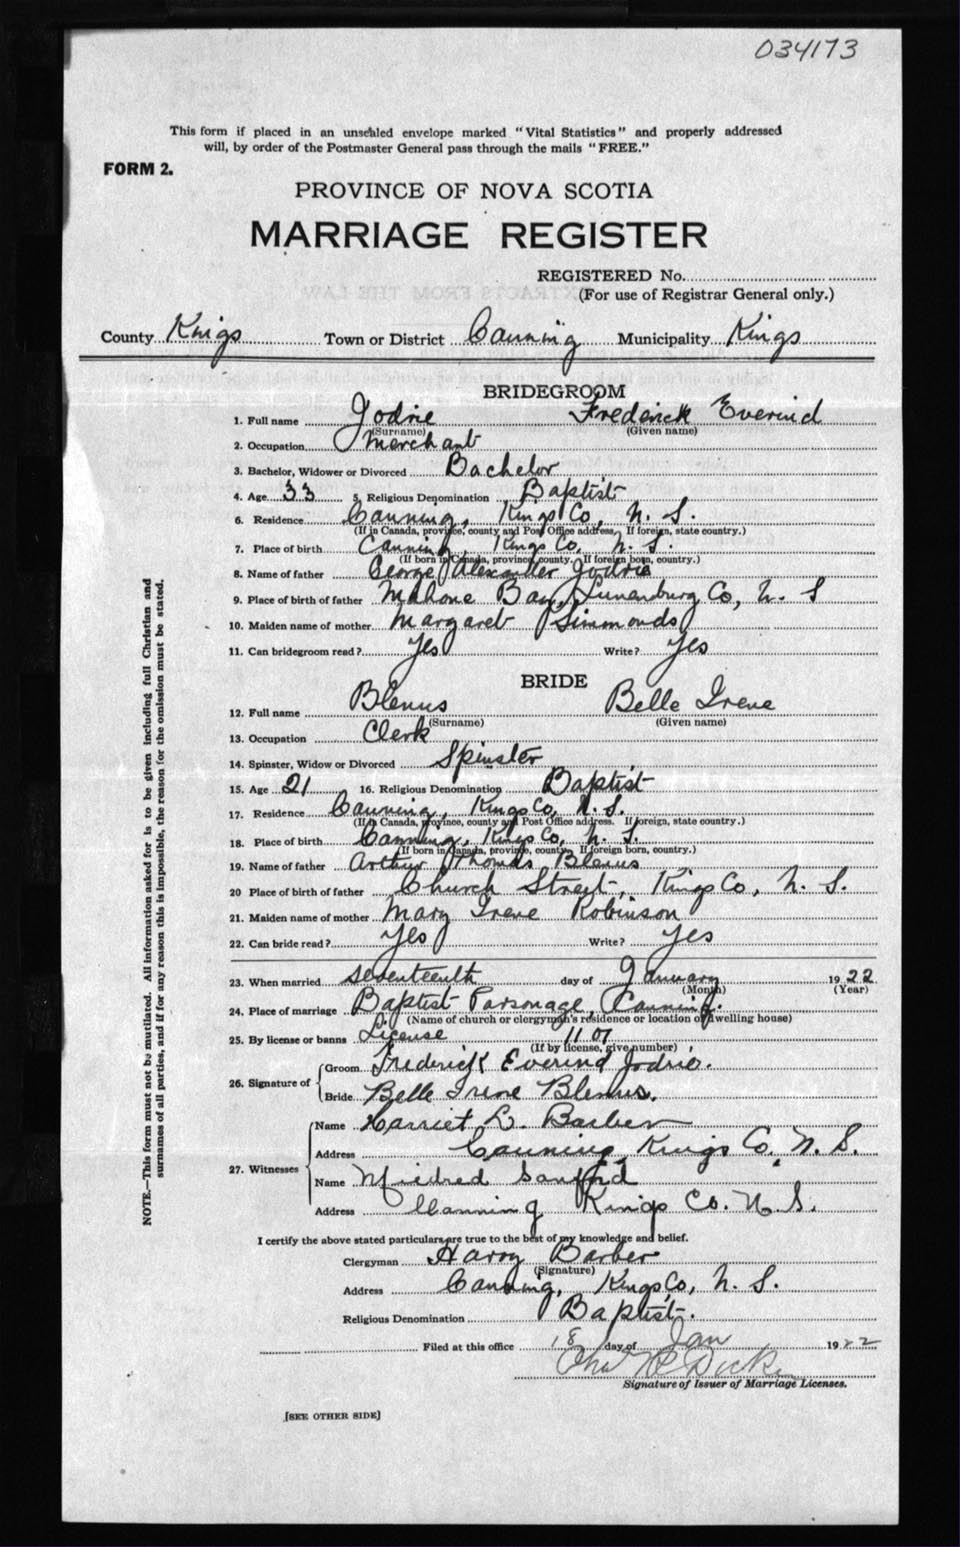 034173
This form if placed in an unsealed envelope marked "Vital Statistics" and properly addressed
will, by order of the Postmaster General pass through the mails "FREE."
FORM 2.
PROVINCE OF NOVA SCOTIA
MARRIAGE REGISTER
REGISTERED No.
(For use of Registrar General only.)
County Kings Town or District Canning Municipality Kings
BRIDEGROOM
1. Full name Jodrie Frederick Everind
(Surname) (Given name)
2. Occupation Merchant
3. Bachelor, Widower or Divorced Bachelor
4. Age 33 5. Religious Denomination Baptist
6. Residence Canning, Kings Co, N. S.
(If in Canada, province, county and Post Office address. If foreign, state country.)
7. Place of birth Canning, Kings Co, N. S.
(If born in Canada, province, county. If foreign born, country.)
8. Name of father George Alexander Jodrie
9. Place of birth of father Mahone Bay, Lunenburg Co, N. S
10. Maiden name of mother Margaret Simmonds
11. Can bridegroom read? Yes Write? Yes
BRIDE
12. Full name Blenus Belle Irene
(Surname) (Given name)
13. Occupation Clerk
14. Spinster, Widow or Divorced Spinster
15. Age 21 16. Religious Denomination Baptist
17. Residence Canning, Kings Co, N. S.
(If in Canada, province, county and Post Office address. If foreign, state country.)
18. Place of birth Canning, Kings Co, N. S.
(If born in Canada, province, county. If foreign born, country.)
19. Name of father Arthur Thomas Blenus
20 Place of birth of father Church Street, Kings Co, N. S.
21. Maiden name of mother Mary Irene Robinson
22. Can bride read? Yes Write? Yes
23. When married seventeenth day of January 1922
(Month) (Year)
24. Place of marriage Baptist Parsonage, Canning.
(Name of church or clergyman's residence or location of dwelling house)
25. By license or banns License 1101
(If by license, give number)
26. Signature of Groom Frederick Everind Jodrie.
Bride Belle Irene Blenus.
27. Witnesses Name Harriet L. Barber
Address Canning, Kings Co, N. S.
Name Mildred Sanford
Address Canning Kings Co. N. S.
I certify the above stated particulars are true to the best of my knowledge and belief.
Clergyman Harry Barber
(Signature)
Address Canning, Kings Co, N. S.
Religious Denomination Baptist.
Filed at this office 18 day of Jan 1922
Signature of Issuer of Marriage Licenses.
[SEE OTHER SIDE]
NOTE.—This form must not be mutilated. All information asked for is to be given including full Christian and
surnames of all parties, and if for any reason this is impossible, the reason for the omission must be stated.